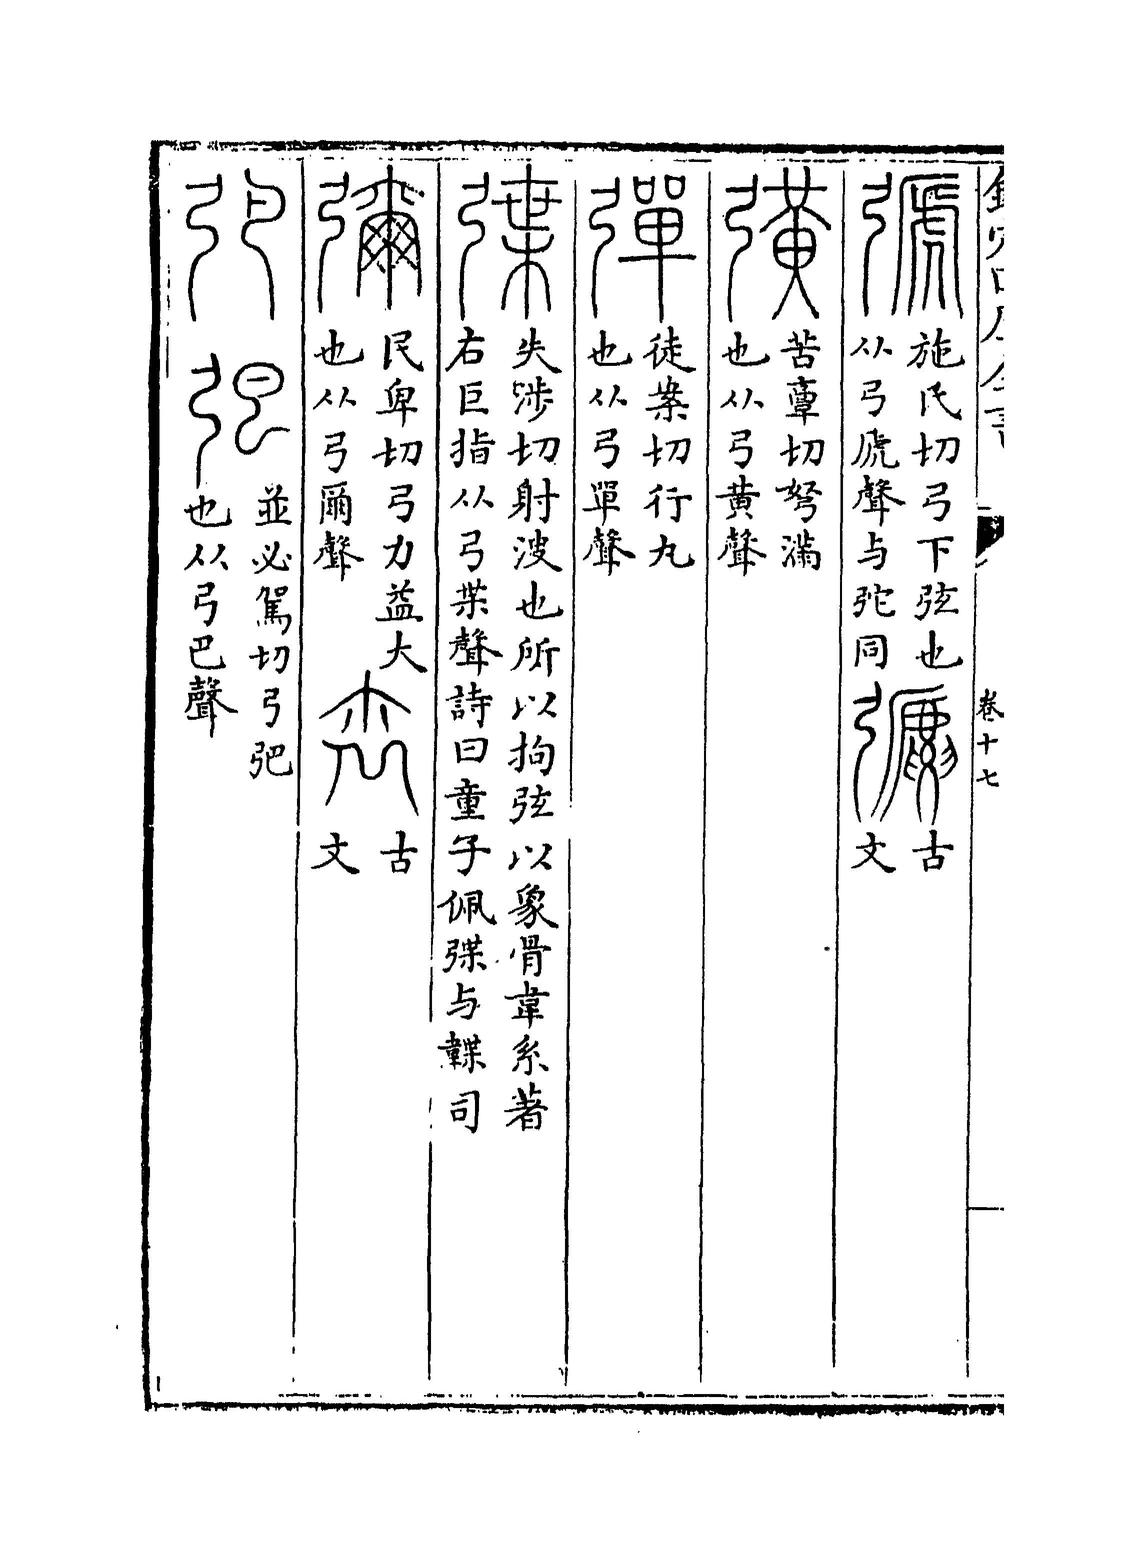 欽定四庫全書
卷十七
𢐋
施氏切弓下弦也
从弓虒聲与弛同
古
文
彉
苦𩫏切弩滿
也从弓黄聲
彈
徒案切行丸
也从弓單聲
弽
失涉切射波也所以拘弦以象骨韋系著
右巨指从弓枼聲詩曰童子佩弽与韘司
彌
民卑切弓力益大
也从弓爾聲
古
文
弝
並必駕切弓弝
也从弓巴聲